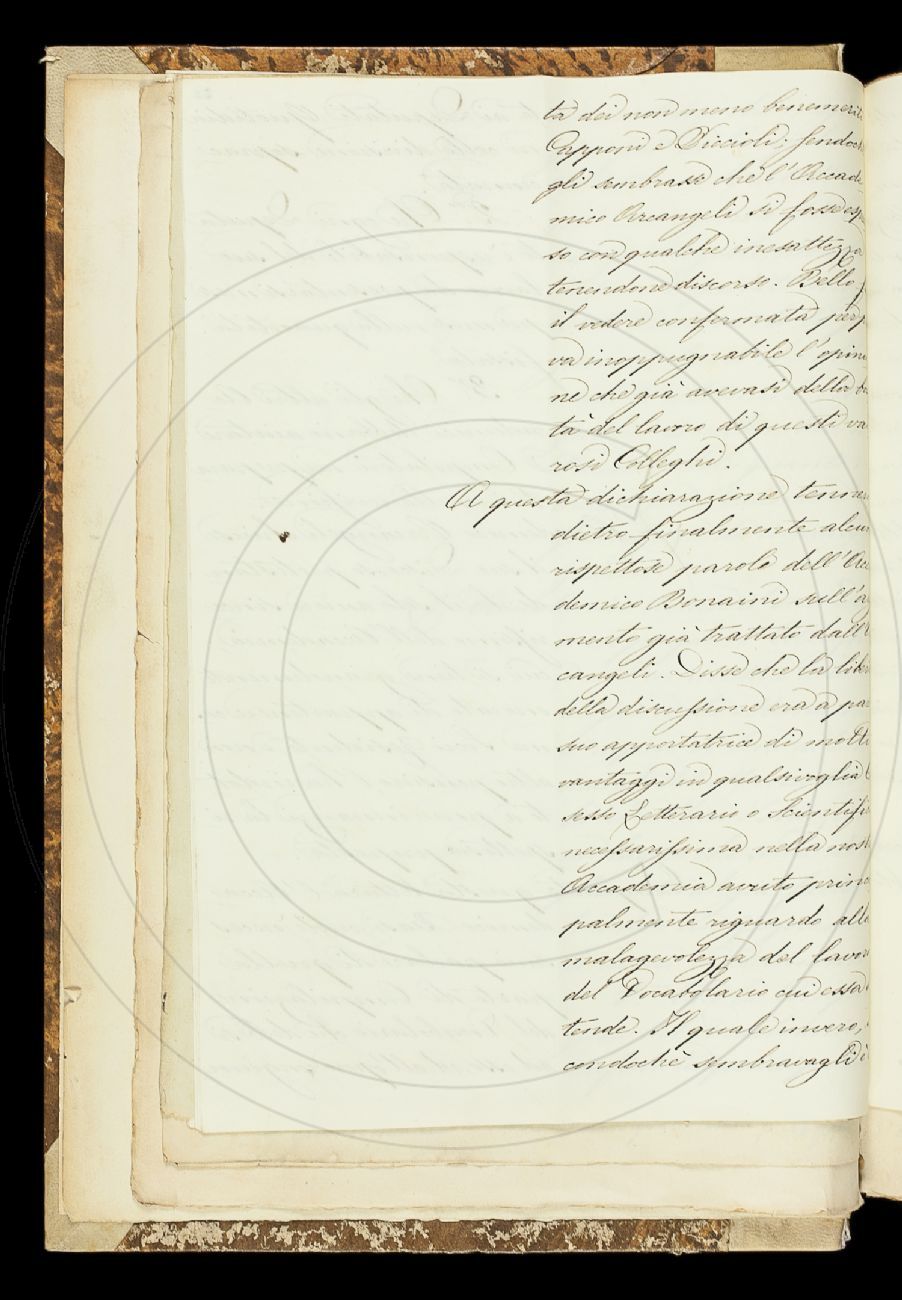 ta dei non meno benemeri
Capponi e Piccioli; sendoch
gli sembrasse che l'Accade-
mico Arcangeli si fosse esp
so con qualche inesattezza
tenendone discorso. Bello f
il vedere confermata per p
va inoppugnabile l'opini
ne che già avevasi della bo
tà del lavoro di questi va
rosi Colleghi.
A questa dichiarazione tenne
dietro finalmente alcun
rispettose parole dell'Acc
demico Bonaini sull'a
mento già trattato dall'
cangeli. Disse che la liber
della discussione era a pa
suo apportatrice di molti
vantaggi in qualsivoglia
sesso Letterario o Scientifi
necessarissima nella nost
Accademia avuto princ
palmente riguardo alla
malagevolezza del lavor
del Vocabolario cui essa
tende. Il quale invero,
condochè sembravagli i